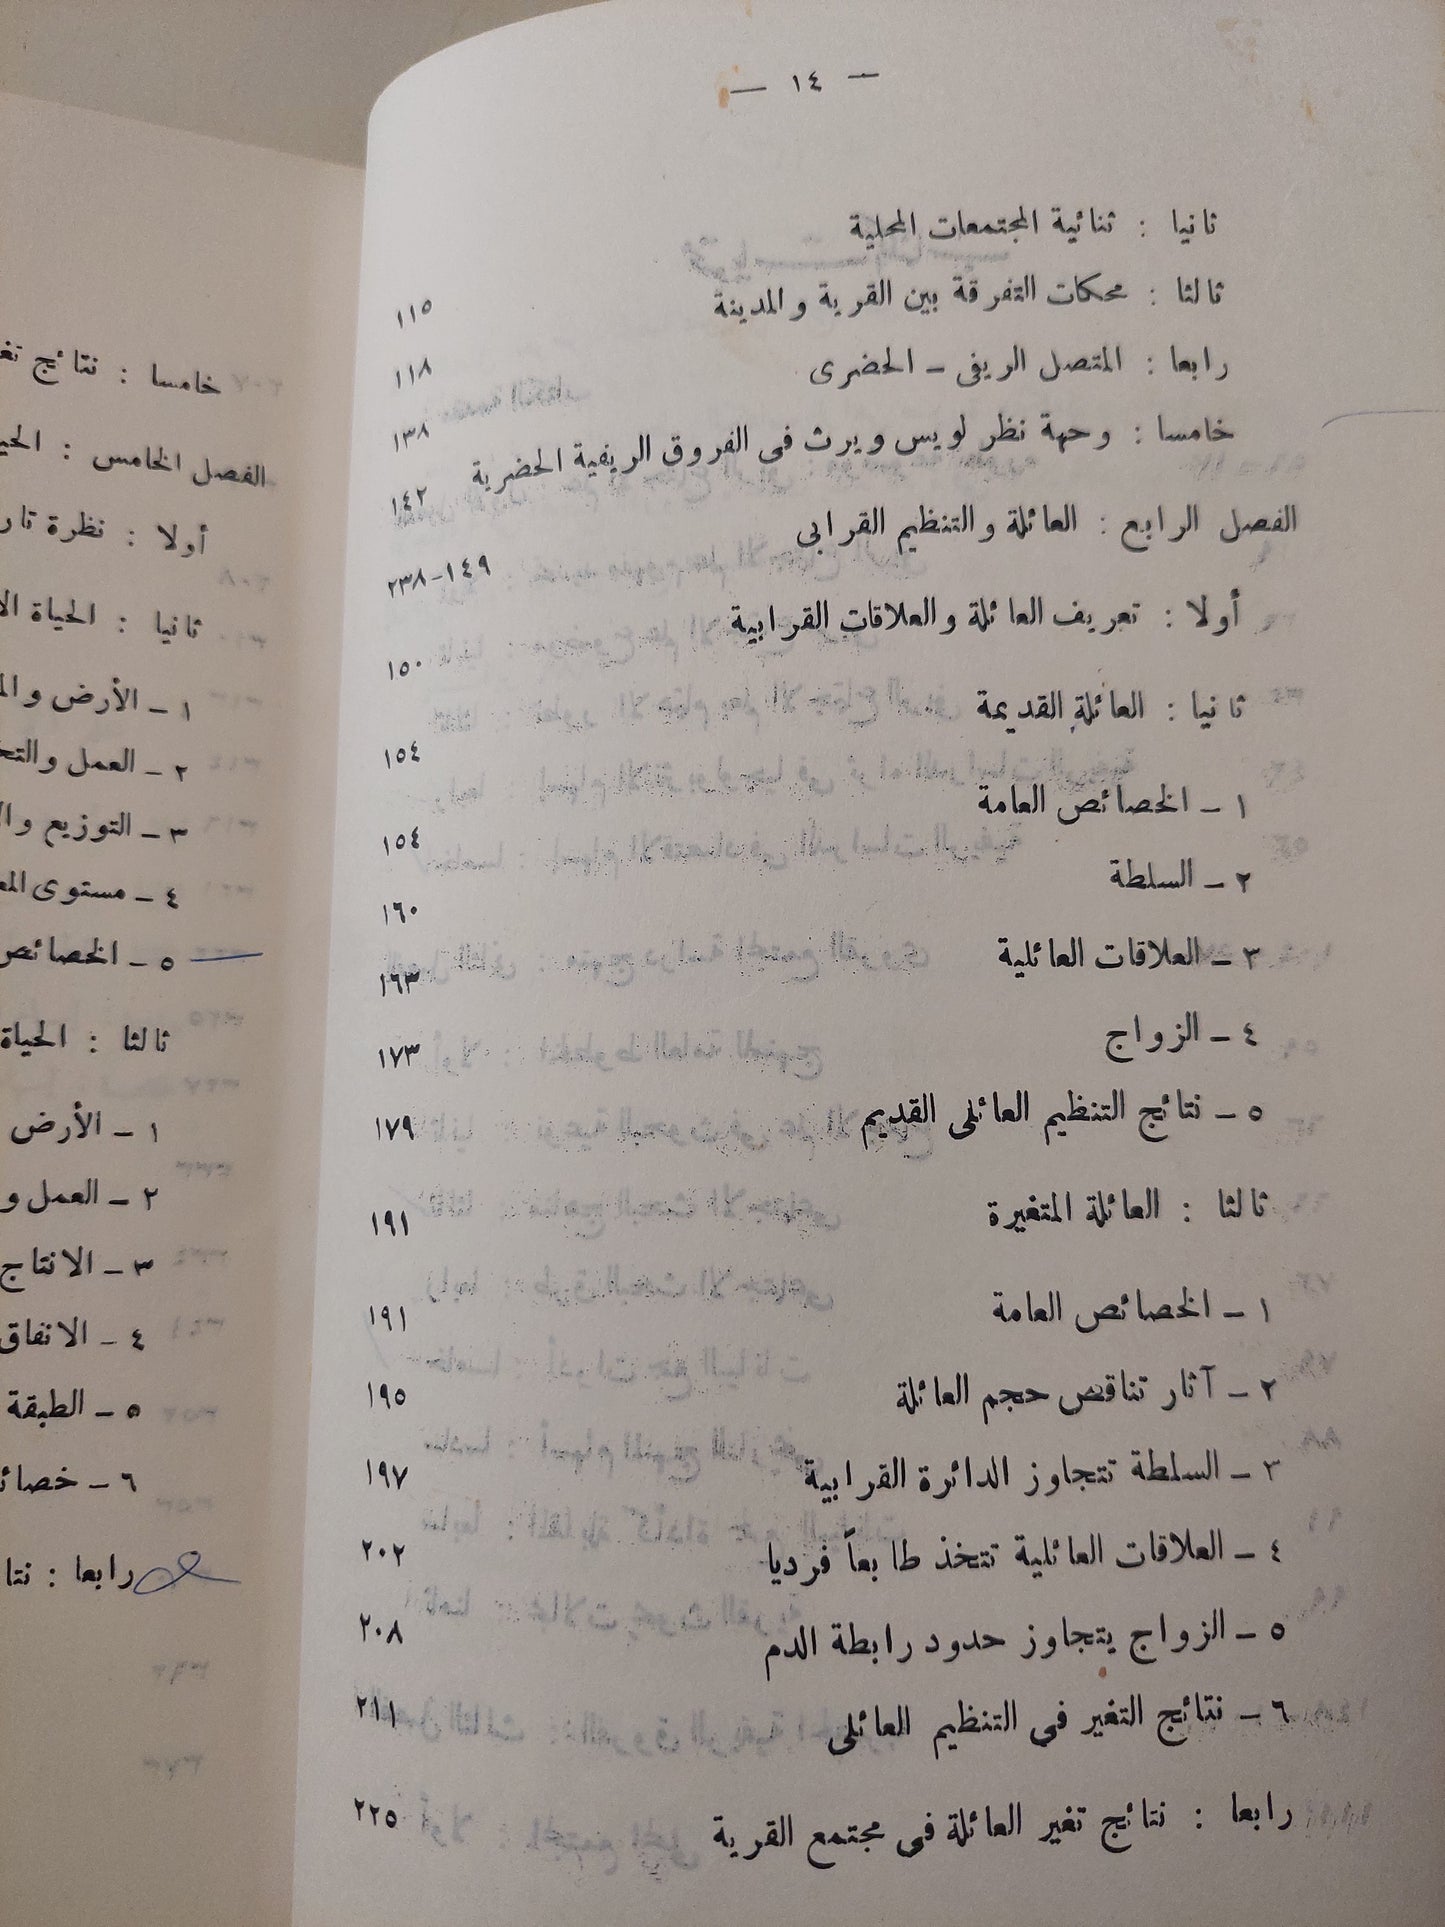 — ١٤ —
ثانيا : ثنائية المجتمعات المحلية ١١٥
ثالثا : محكات التفرقة بين القرية والمدينة ١١٨
رابعا : المتصل الريفى – الحضرى ١٣٨
خامسا : وجهة نظر لويس ويرث فى الفروق الريفية الحضرية ١٤٢
الفصل الرابع : العائلة والتنظيم القرابى ١٤٩–٢٣٨
أولا : تعريف العائلة والعلاقات القرابية ١٥٠
ثانيا : العائلة القديمة ١٥٤
١ – الخصائص العامة ١٥٤
٢ – السلطة ١٦٠
٣ – العلاقات العائلية ١٦٣
٤ – الزواج ١٧٣
٥ – نتائج التنظيم العائلى القديم ١٧٩
ثالثا : العائلة المتغيرة ١٩١
١ – الخصائص العامة ١٩١
٢ – آثار تناقص حجم العائلة ١٩٥
٣ – السلطة تتجاوز الدائرة القرابية ١٩٧
٤ – العلاقات العائلية تتخذ طابعاً فرديا ٢٠٢
٥ – الزواج يتجاوز حدود رابطة الدم ٢٠٨
٦ – نتائج التغير فى التنظيم العائلى ٢١١
رابعا : نتائج تغير العائلة فى مجتمع القرية ٢٢٥
خامسا : نتائج
الفصل الخامس :
أولا : نظرة
ثانيا : الحياة
١ – الأرض
٢ – العمل
٣ – التوزيع
٤ – مستوى
٥ – الخصائص
ثالثا : الحياة
١ – الأرض
٢ – العمل و
٣ – الانتاج
٤ – الانفاق
٥ – الطبقة
٦ –
رابعا :